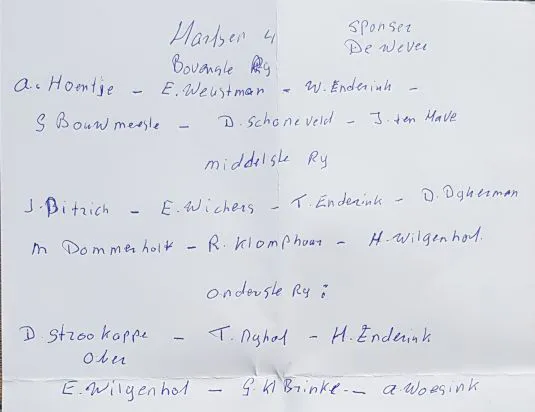 Martser 4
sponser
De Wever
Bovenste Ry
A. Hoentje - E. Weustman - W. Enderink -
G Bouwmeesle - D. Schoneveld - J. ten Have
middelste Ry
J. Bitzich - E. Wichers - T. Enderink - D. Dykerman
M Dommerholt - R. Klomphaar - H. Wilgenhof.
onderste Ry :
D. Strookappe - T. Nyhof - H. Enderink
Ober
E. Wilgenhof - G. Kl Brinke - A. Woesink